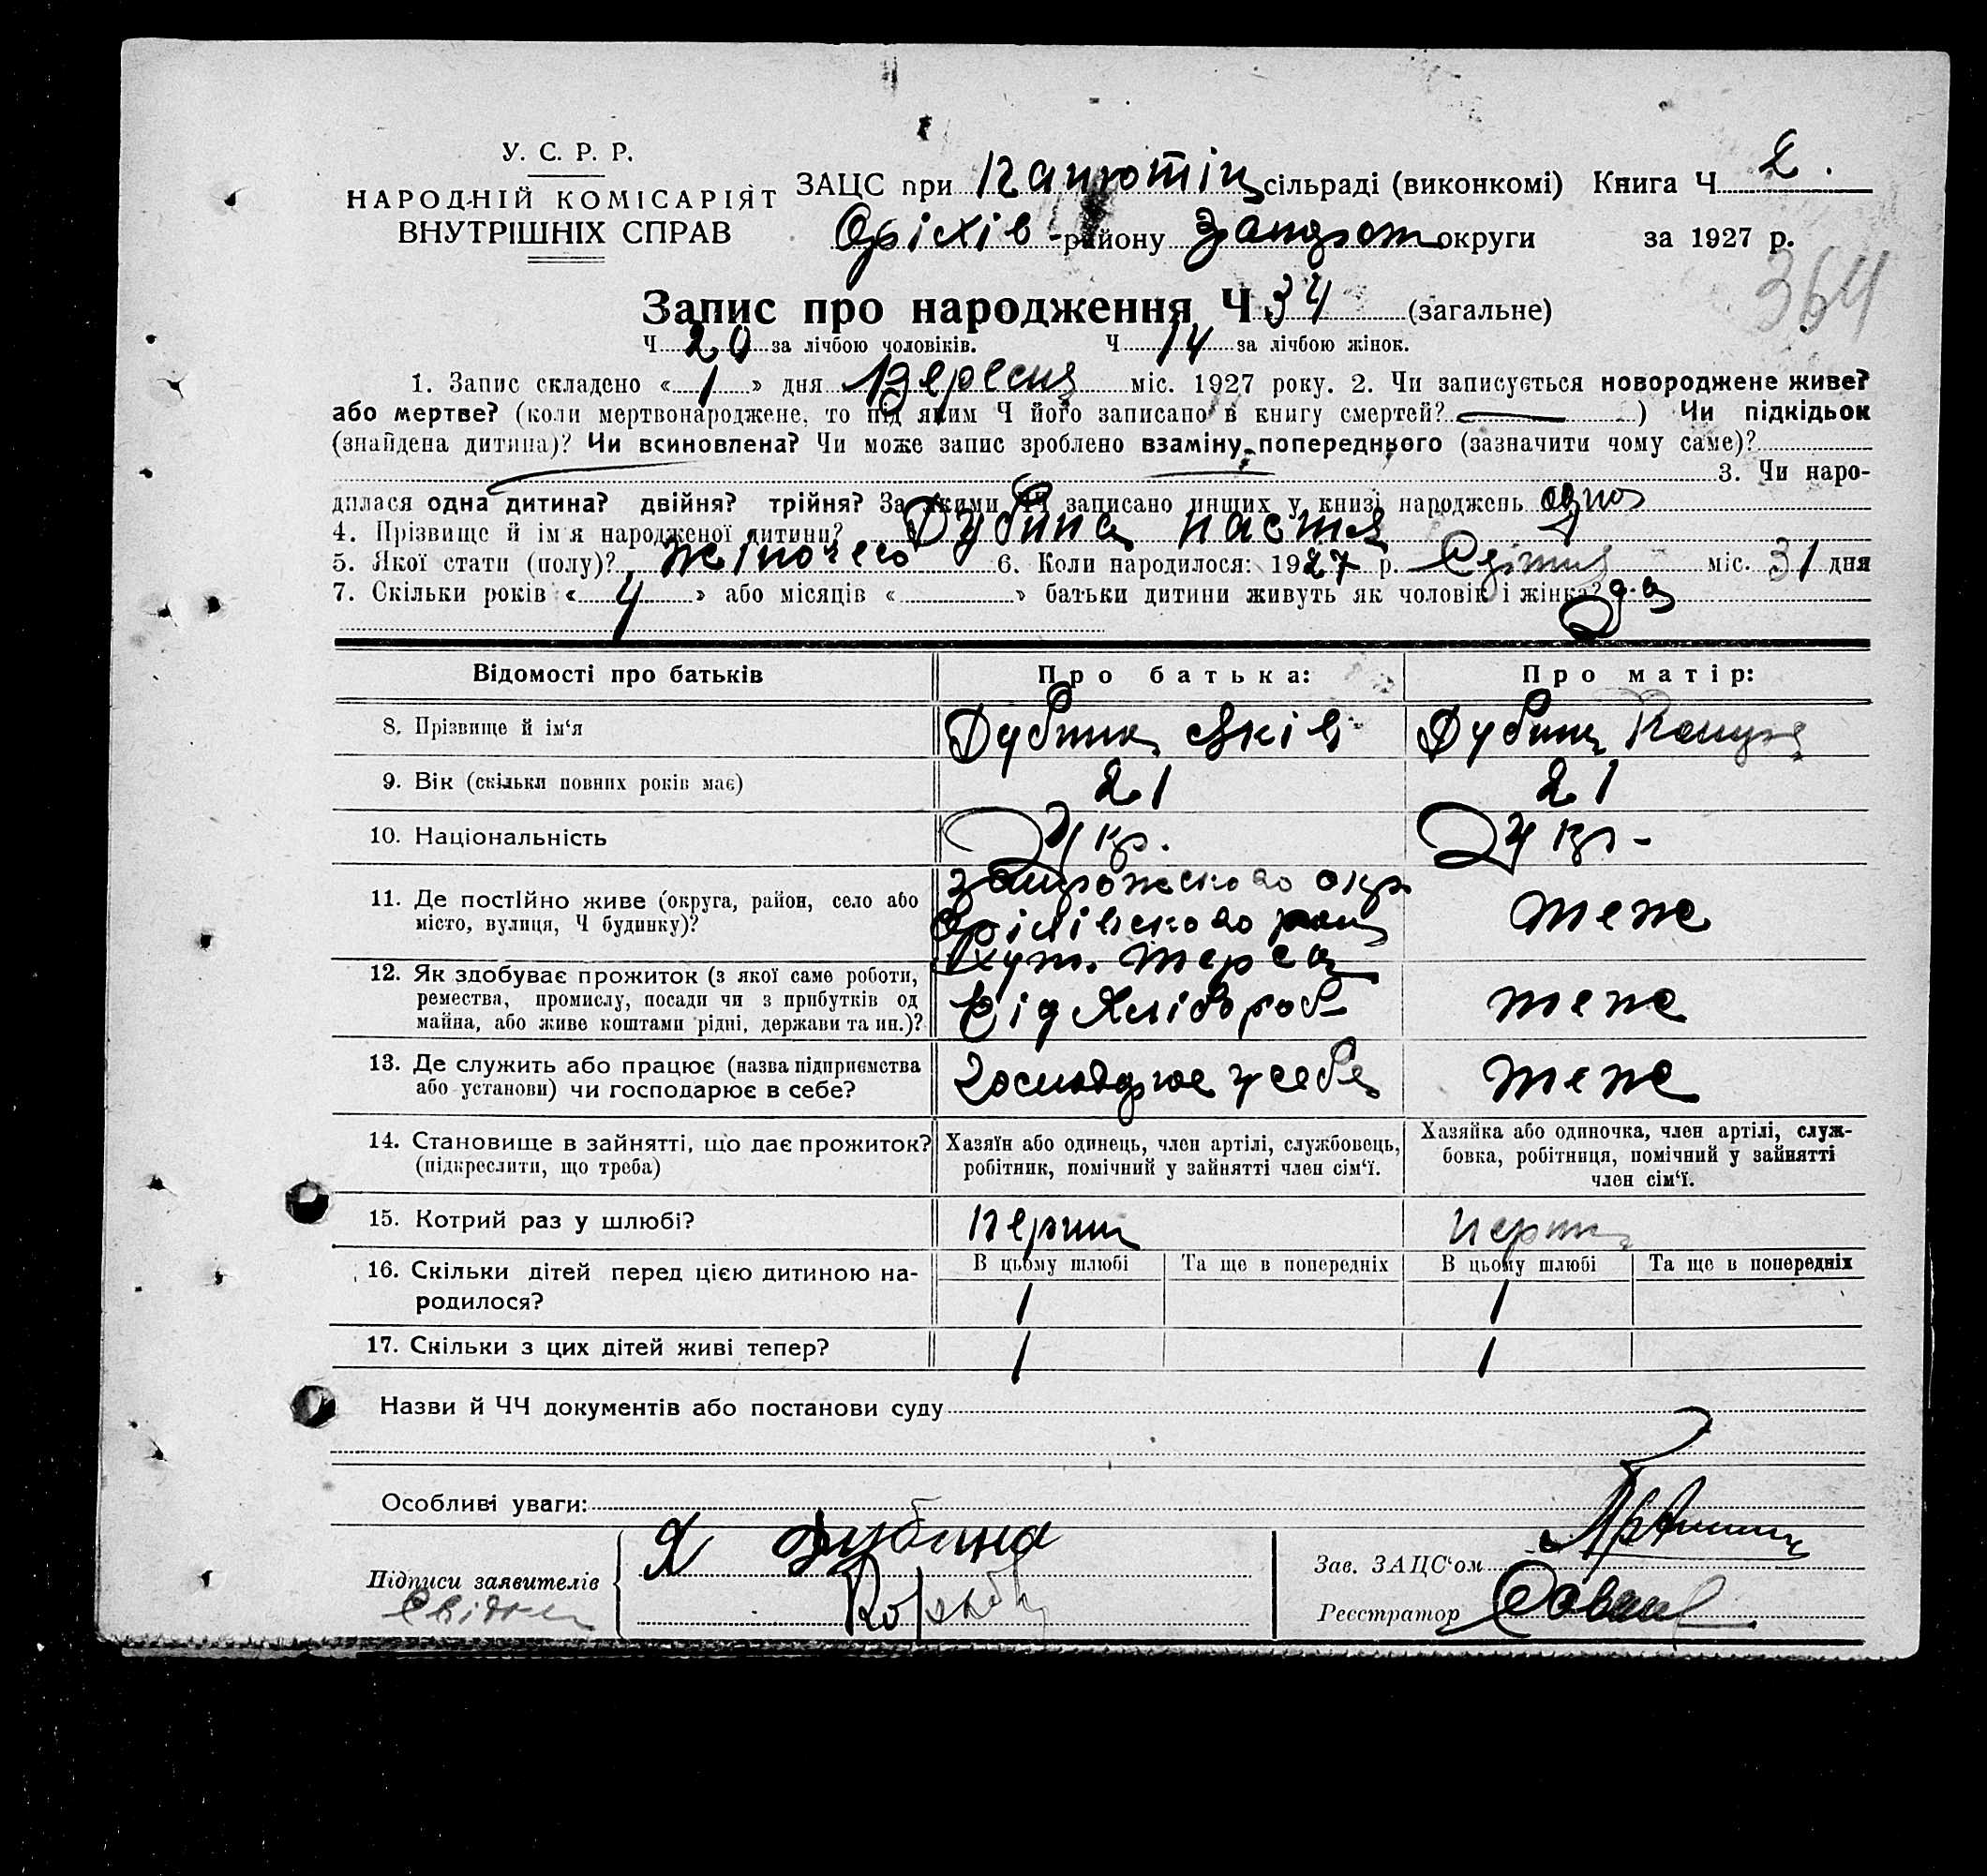 У. С. Р. Р.
НАРОДНІЙ КОМІСАРІЯТ
ВНУТРІШНІХ СПРАВ
ЗАЦС при Капютіц сільраді (виконкомі) Книга Ч 2.
Оріхів району Запорож округи за 1927 р.
364
Запис про народження Ч 34 (загальне)
Ч 20 за лічбою чоловіків. Ч 14 за лічбою жінок.
1. Запис складено «1» дня Вересня міс. 1927 року. 2. Чи записується новороджене живе?
або мертве? (коли мертвонароджене, то під яким Ч його записано в книгу смертей? —) Чи підкідьок
(знайдена дитина)? Чи всиновлена? Чи може запис зроблено взаміну попереднього (зазначити чому саме)?
3. Чи наро-
дилася одна дитина? двійня? трійня? За якими ЧЧ записано инших у книзі народжень одно
4. Прізвище й ім'я народженої дитини? Дубина Настя
5. Якої стати (полу)? Жіночего 6. Коли народилося: 1927 р. Серпня міс. 31 дня
7. Скільки років «4» або місяців « » батьки дитини живуть як чоловік і жінка? да
Відомості про батьків Про батька: Про матір:
8. Прізвище й ім'я Дубина Яків Дубина
9. Вік (скільки повних років має) 21 21
10. Національність Укр. Укр-
11. Де постійно живе (округа, район, село або
місто, вулиця, Ч будинку)?
Запорожского окр.
Оріхівского рай
Хут. Терса
теж
12. Як здобуває прожиток (з якої саме роботи,
ремества, промислу, посади чи з прибутків од
майна, або живе коштами рідні, держави та ин.)?
Від Хлібороб
теж
13. Де служить або працює (назва підприємства
або установи) чи господарює в себе?
Господарює у себе
теж
14. Становище в зайнятті, що дає прожиток?
(підкреслити, що треба)
Хазяїн або одинець, член артілі, службовець,
робітник, помічний у зайнятті член сім'ї.
Хазяйка або одиночка, член артілі, служ-
бовка, робітниця, помічний у зайнятті
член сім'ї.
15. Котрий раз у шлюбі? перши перши
16. Скільки дітей перед цією дитиною на-
родилося?
В цьому шлюбі Та ще в попередніх В цьому шлюбі Та ще в попередніх
1 1
17. Скільки з цих дітей живі тепер? 1 1
Назви й ЧЧ документів або постанови суду
Особливі уваги:
Підписи заявителів Я Дубина
Свідки
Зав. ЗАЦС'ом
Реєстратор